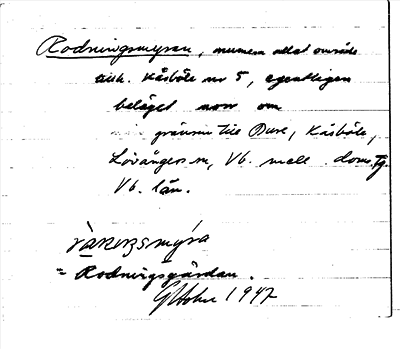 Rodningsmyran, numera odlat område
till Kåsböle nr 5, egentligen
beläget norr om
gränsen till Bure, Kåsböle,
Lövångers sn, Vb. mell. doms.
Vb. län.
= Rodningsgärdan.
G Holm 1947